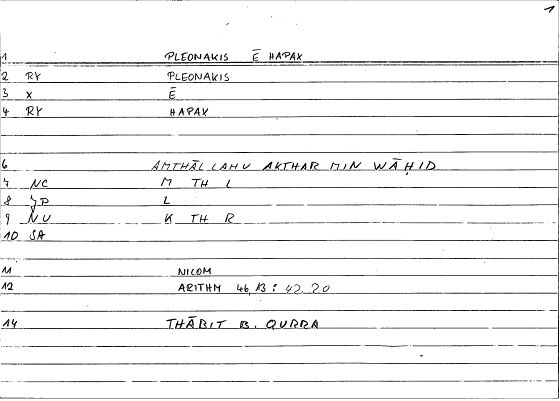 1
1 PLEONAKIS Ē HAPAX
2 RY PLEONAKIS
3 X Ē
4 RY HAPAX
6 AMTHĀL LAHU AKTHAR MIN WĀḤID
7 NC M TH L
8 JP L
9 NU K TH R
10 SA
11 NICOM
12 ARITHM 46,13 : 42.20
14 THĀBIT B. QURRA